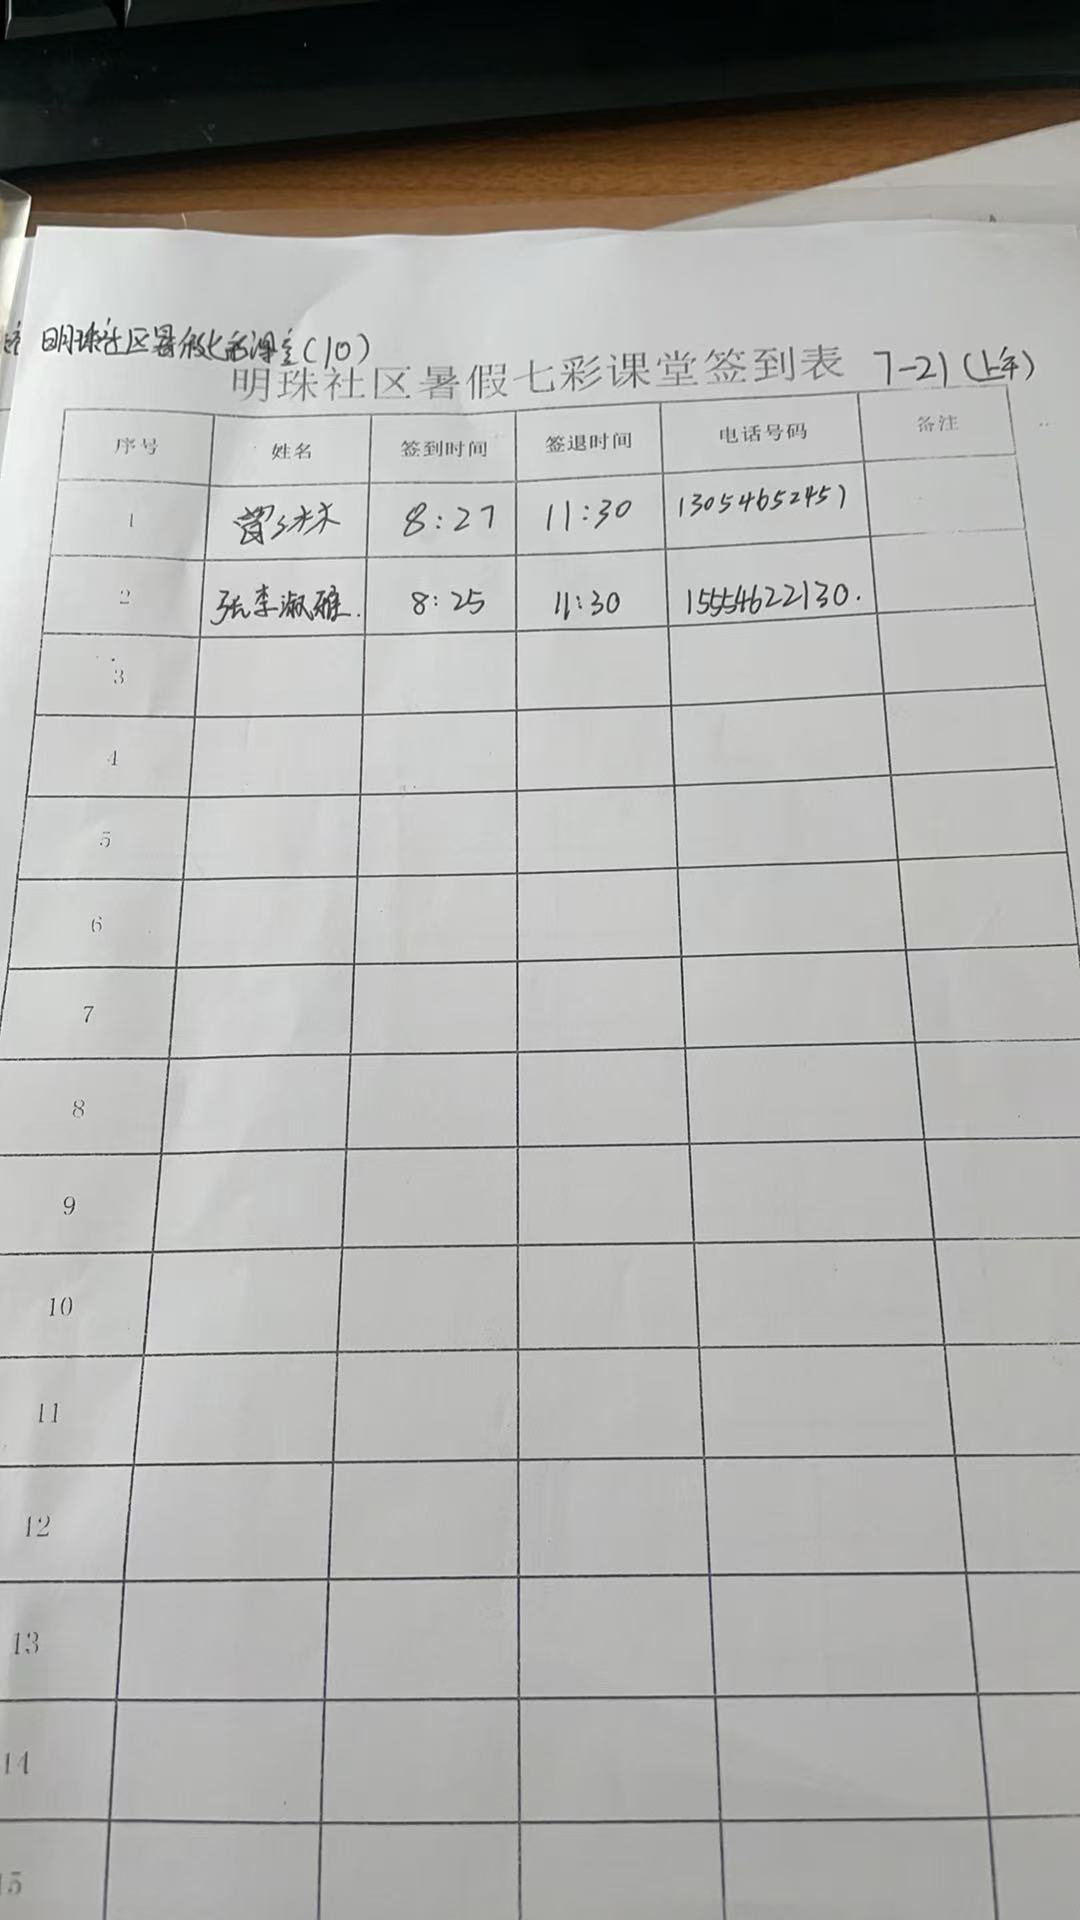 明珠社区暑假七彩课堂(10)
明珠社区暑假七彩课堂签到表 7-21(上午)
序号 姓名 签到时间 签退时间 电话号码 备注
1 8:27 11:30 13054652457
2 张李淑雅. 8:25 11:30 15554622130.
3
4
5
6
7
8
9
10
11
12
13
14
15